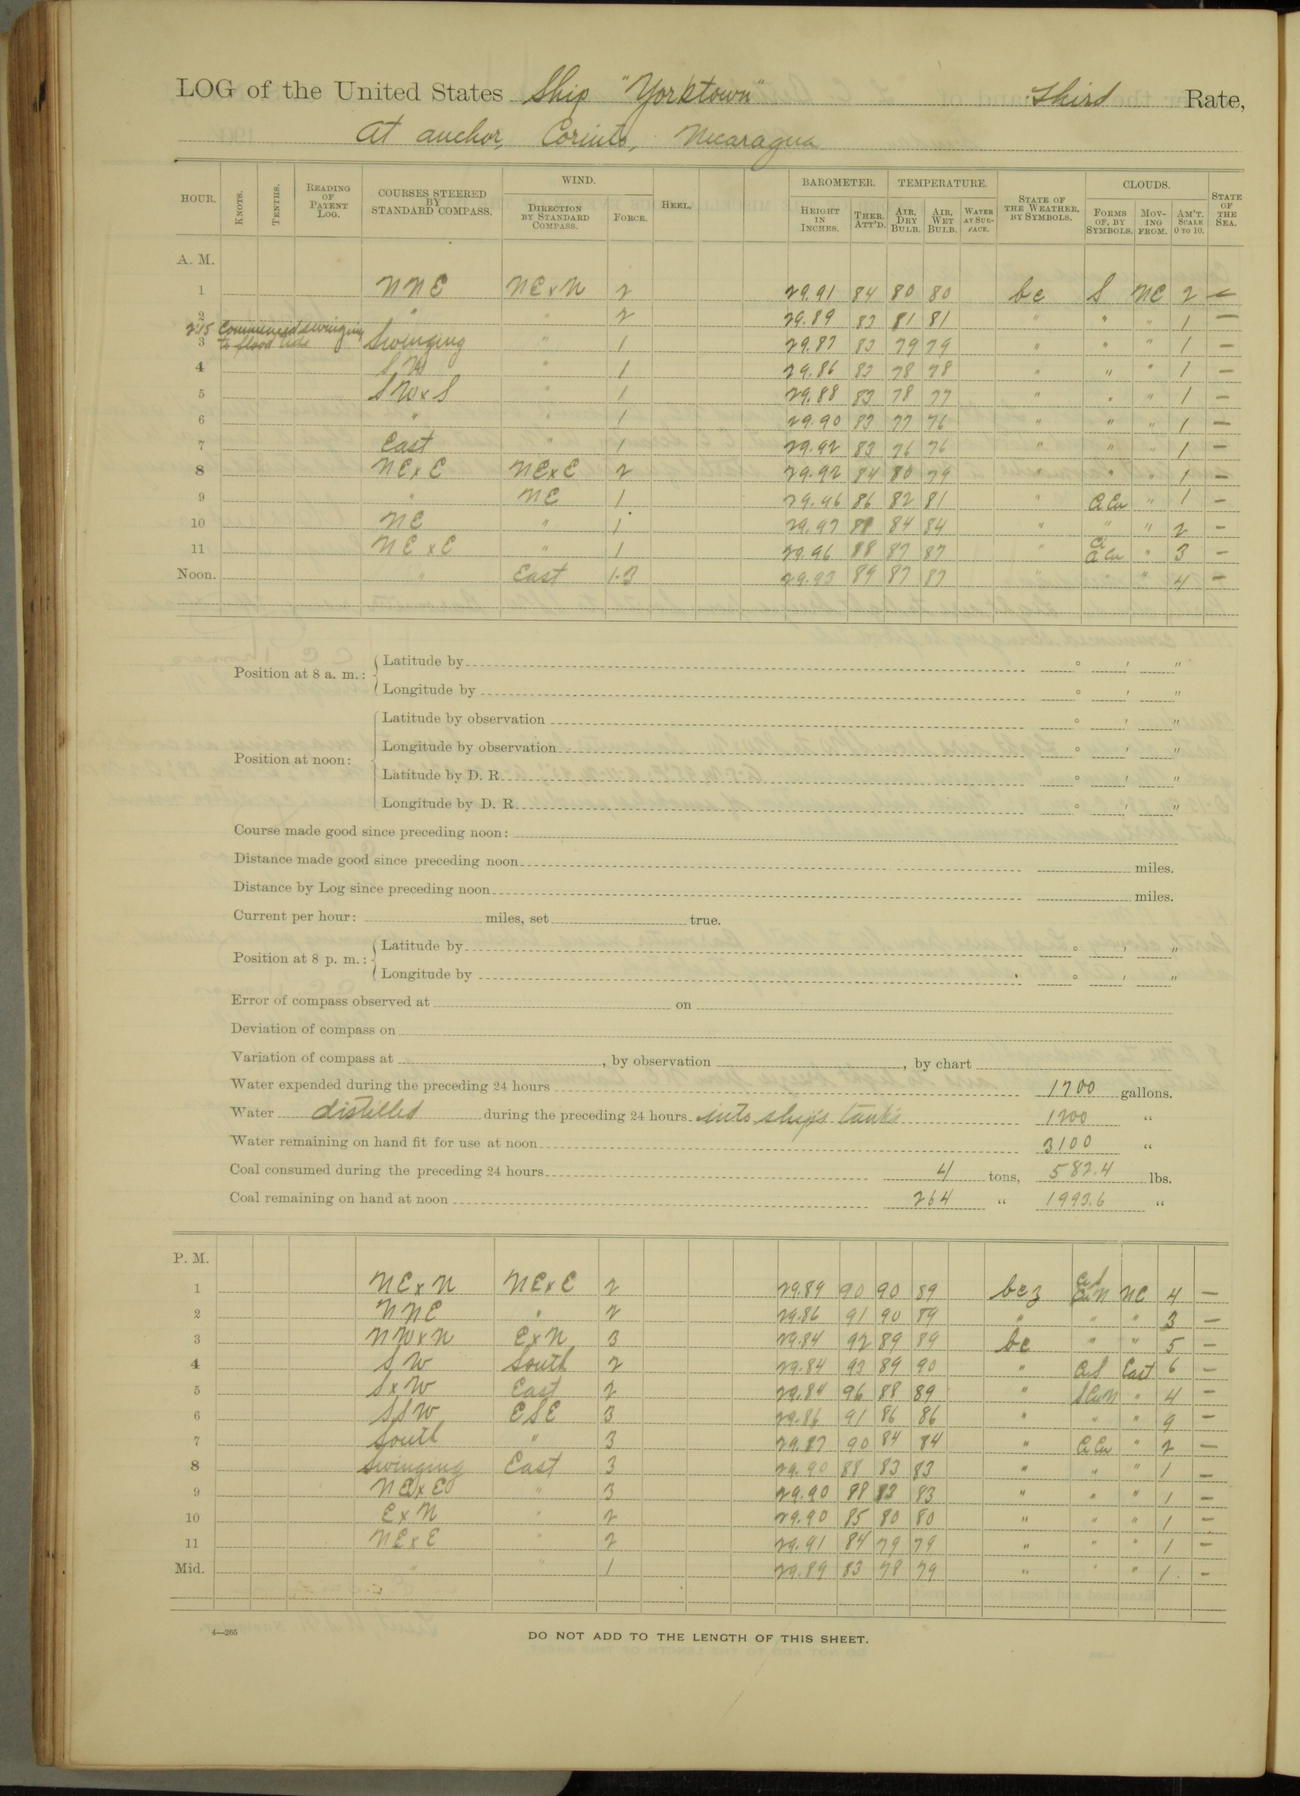 LOG of the United States Ship "Yorktown" Third Rate,
At anchor, Corinto, Nicaragua
HOUR. KNOTS. TENTHS. READING OF PATENT LOG. COURSES STEERED BY STANDARD COMPASS. WIND. DIRECTION BY STANDARD COMPASS. FORCE. HEEL. BAROMETER. HEIGHT IN INCHES. THER. ATT'D. TEMPERATURE. AIR, DRY BULB. AIR, WET BULB. WATER AT SURFACE. STATE OF THE WEATHER, BY SYMBOLS. CLOUDS. FORMS OF, BY SYMBOLS. MOVING FROM. AM'T. SCALE 0 TO 10. STATE OF THE SEA.
A. M.
1 NNE NExN 2 29.91 84 80 80 bc S NE 2 –
2 " " 2 29.89 83 81 81 " " " 1 –
2:15 Commenced swinging to flood tide
3 Swinging " 1 29.87 83 79 79 " " " 1 –
4 SW " 1 29.86 83 78 78 " " " 1 –
5 SWxS " 1 29.88 83 78 77 " " " 1 –
6 " " 1 29.90 83 77 76 " " " 1 –
7 East " 1 29.92 83 76 76 " " " 1 –
8 NExE NExE 2 29.92 84 80 79 " " " 1 –
9 " NE 1 29.96 86 82 81 " Ci Cu " 1 –
10 NE " 1 29.97 88 84 84 " " " 2 –
11 NExE " 1 29.96 88 87 87 " Ci Ci Cu " 3 –
Noon. " East 1-3 29.93 89 87 87 " " " 4 –
Position at 8 a. m.: Latitude by ° ' "
Longitude by ° ' "
Position at noon: Latitude by observation ° ' "
Longitude by observation ° ' "
Latitude by D. R. ° ' "
Longitude by D. R. ° ' "
Course made good since preceding noon:
Distance made good since preceding noon miles.
Distance by Log since preceding noon miles.
Current per hour: miles, set true.
Position at 8 p. m.: Latitude by ° ' "
Longitude by ° ' "
Error of compass observed at on
Deviation of compass on
Variation of compass at , by observation , by chart
Water expended during the preceding 24 hours 1700 gallons.
Water distilled during the preceding 24 hours into ship's tanks 1200 "
Water remaining on hand fit for use at noon 3100 "
Coal consumed during the preceding 24 hours 4 tons, 582.4 lbs.
Coal remaining on hand at noon 264 " 1993.6 "
P. M.
1 NExN NExE 2 29.89 90 90 89 bcz NE 4 –
2 NNE " 2 29.86 91 90 89 " " " 3 –
3 NWxN ExN 3 29.84 92 89 89 bc " " 5 –
4 SW South 2 29.84 93 89 90 " CiS East 6 –
5 SxW East 2 29.84 96 88 89 " SCuN " 4 –
6 SSW ESE 3 29.86 91 86 86 " " " 9 –
7 South " 3 29.87 90 84 84 " Ci Cu " 2 –
8 Swinging East 3 29.90 88 83 83 " " " 1 –
9 NExE " 3 29.90 88 83 83 " " " 1 –
10 ExN " 2 29.90 85 80 80 " " " 1 –
11 NExE " 2 29.91 84 79 79 " " " 1 –
Mid. " " 1 29.89 83 78 79 " " " 1 –
4—265
DO NOT ADD TO THE LENGTH OF THIS SHEET.